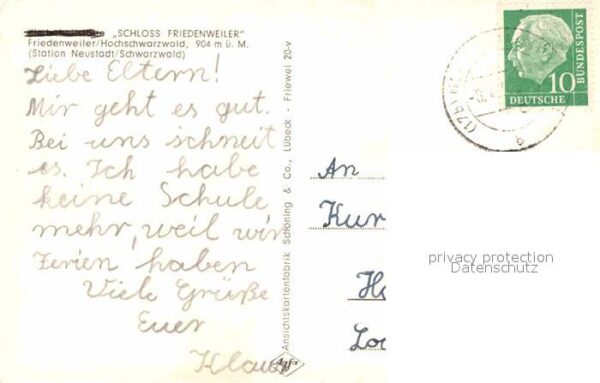 „SCHLOSS FRIEDENWEILER"
Friedenweiler/Hochschwarzwald, 904 m ü. M.
(Station Neustadt/Schwarzwald)
Liebe Eltern!
Mir geht es gut.
Bei uns schneit
es. Ich habe
keine Schule
mehr, weil wir
Ferien haben
Viele Grüße
Euer
Klaus
Ansichtskartenfabrik Schöning & Co., Lübeck - Friewei 20-v
Agfa
DEUTSCHE
BUNDESPOST
10
(17b)
An
Kur
privacy protection
Datenschutz